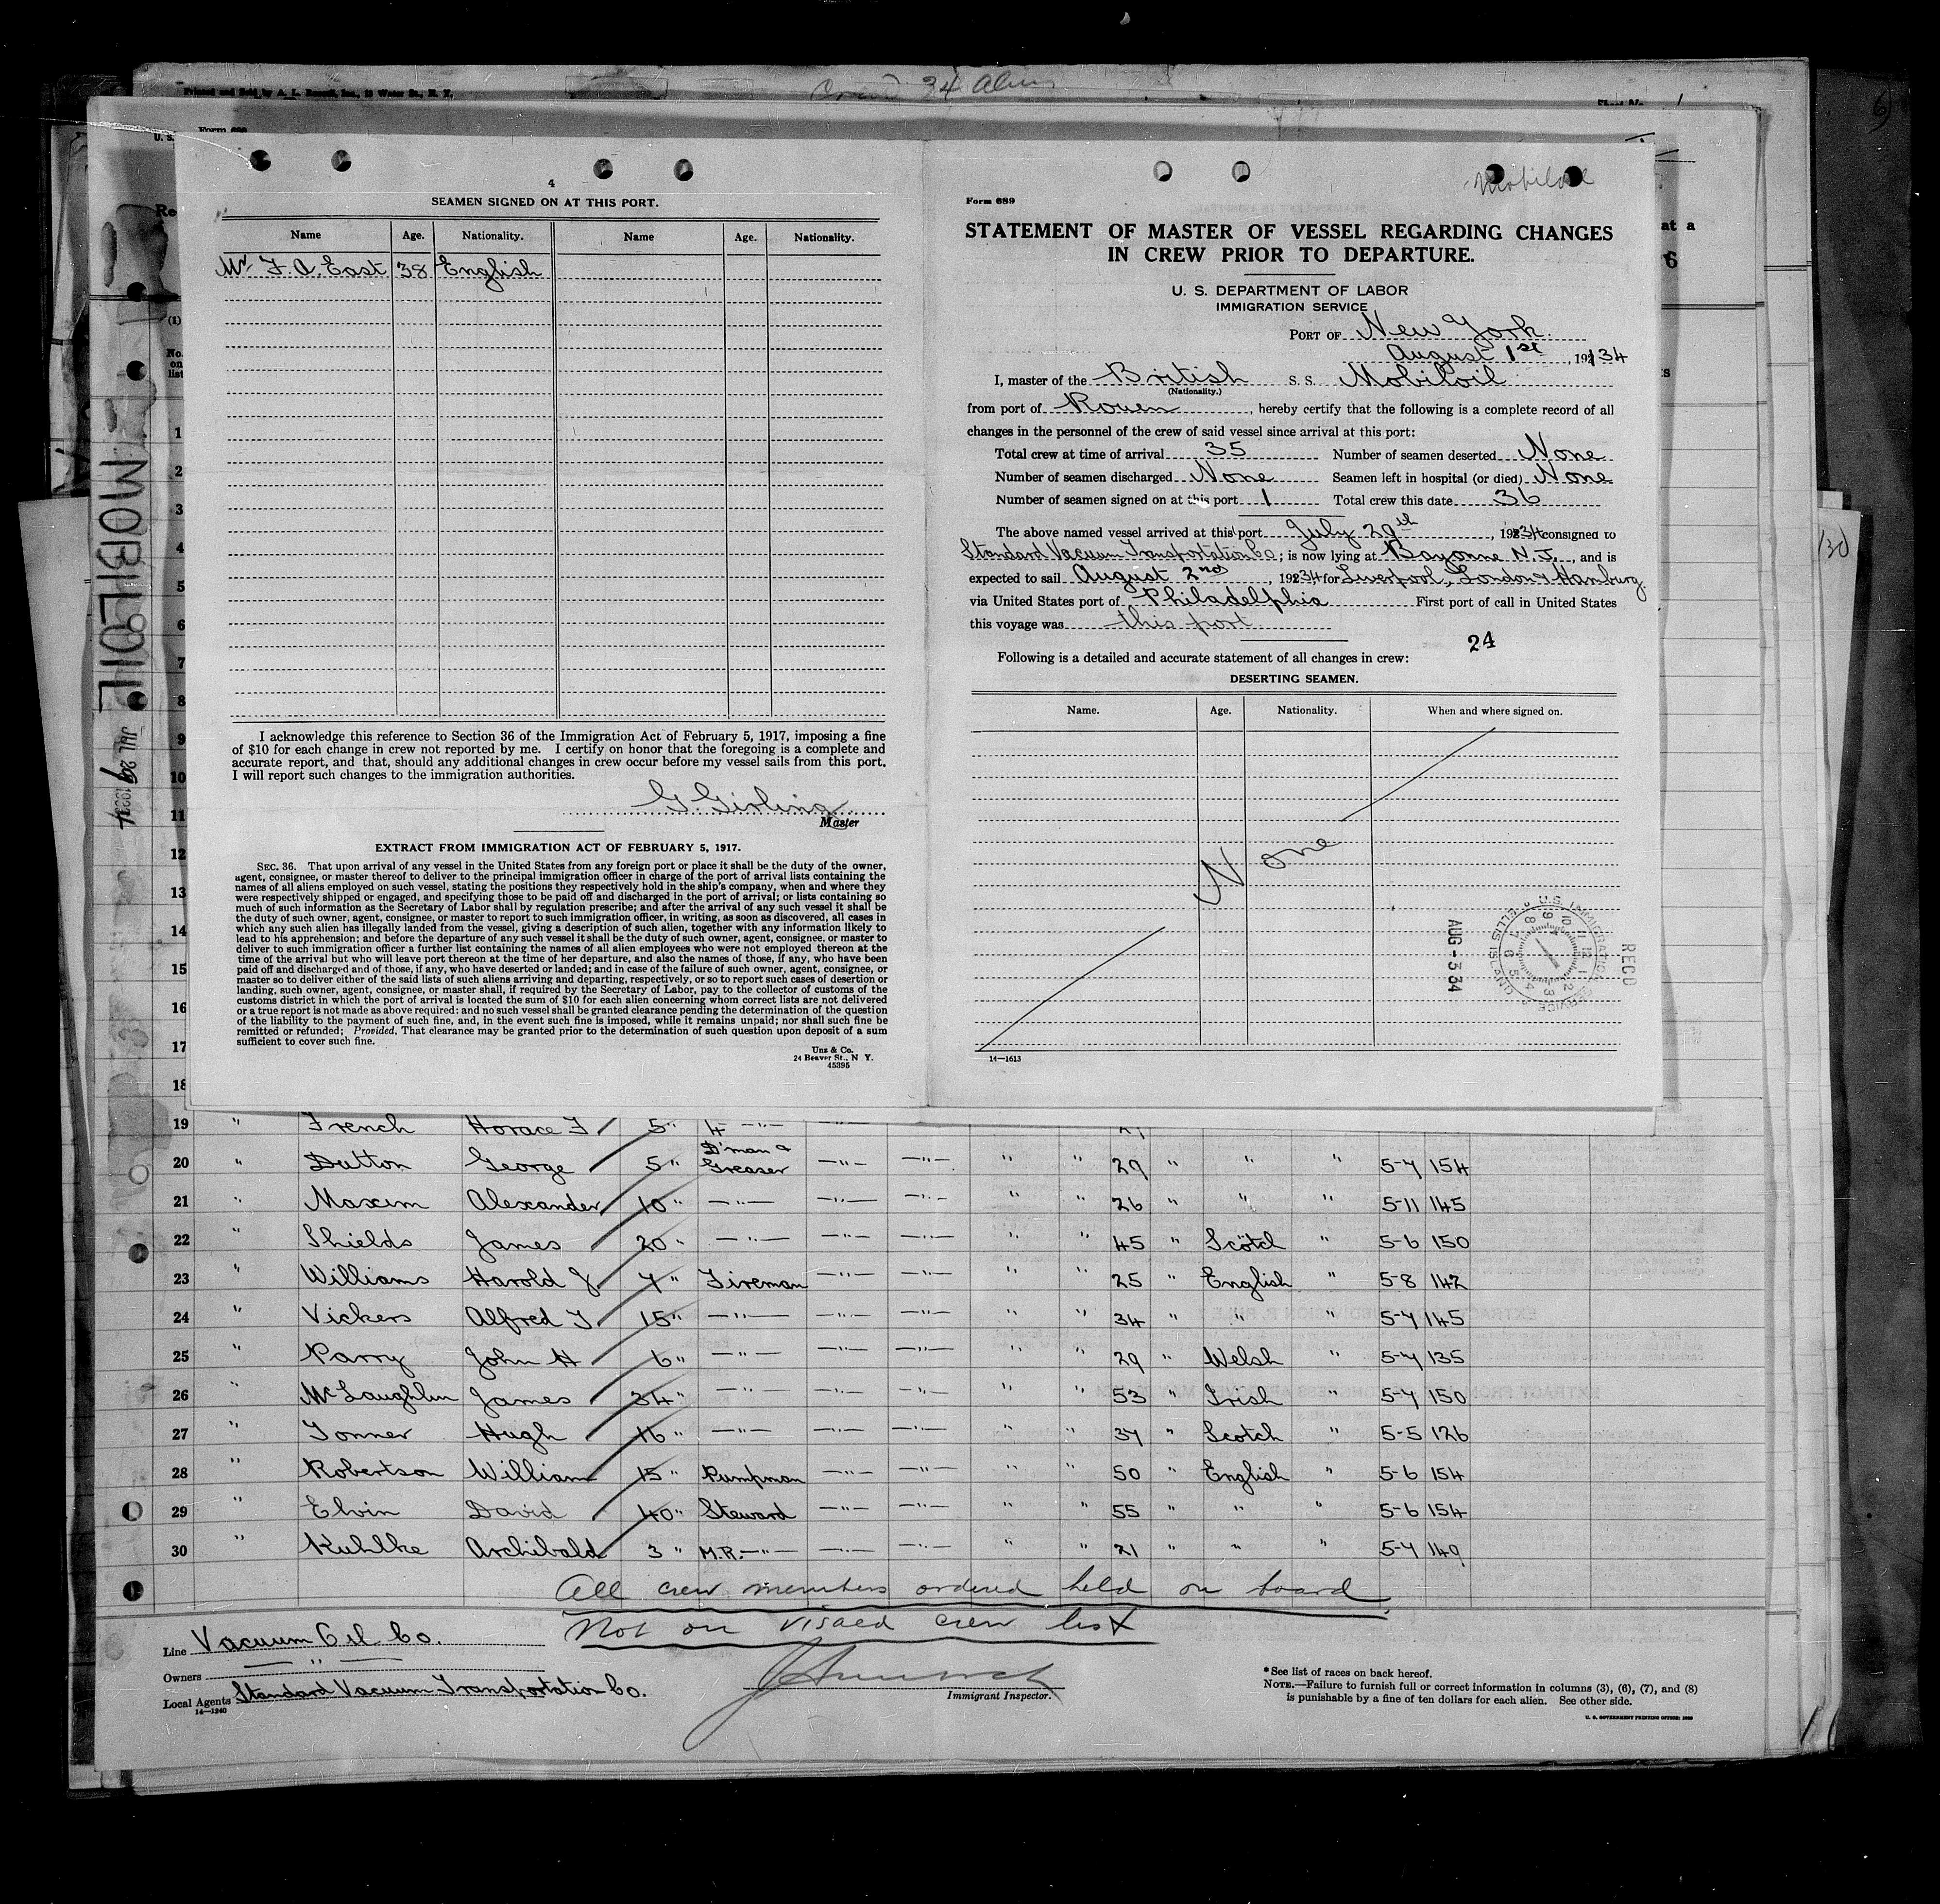 Printed and Sold by A. L. Russell, Inc., 10 Water St., N. Y.
34 Alien
Form 680
U. S.
at a
MOBILOIL
JUL 29 1934
4
SEAMEN SIGNED ON AT THIS PORT.
Name Age. Nationality. Name Age. Nationality.
Mr. F. A. East 38 English
I acknowledge this reference to Section 36 of the Immigration Act of February 5, 1917, imposing a fine
of $10 for each change in crew not reported by me. I certify on honor that the foregoing is a complete and
accurate report, and that, should any additional changes in crew occur before my vessel sails from this port,
I will report such changes to the immigration authorities.
G. Girling
Master
EXTRACT FROM IMMIGRATION ACT OF FEBRUARY 5, 1917.
SEC. 36. That upon arrival of any vessel in the United States from any foreign port or place it shall be the duty of the owner,
agent, consignee, or master thereof to deliver to the principal immigration officer in charge of the port of arrival lists containing the
names of all aliens employed on such vessel, stating the positions they respectively hold in the ship's company, when and where they
were respectively shipped or engaged, and specifying those to be paid off and discharged in the port of arrival; or lists containing so
much of such information as the Secretary of Labor shall by regulation prescribe; and after the arrival of any such vessel it shall be
the duty of such owner, agent, consignee, or master to report to such immigration officer, in writing, as soon as discovered, all cases in
which any such alien has illegally landed from the vessel, giving a description of such alien, together with any information likely to
lead to his apprehension; and before the departure of any such vessel it shall be the duty of such owner, agent, consignee, or master to
deliver to such immigration officer a further list containing the names of all alien employees who were not employed thereon at the
time of the arrival but who will leave port thereon at the time of her departure, and also the names of those, if any, who have been
paid off and discharged and of those, if any, who have deserted or landed; and in case of the failure of such owner, agent, consignee, or
master so to deliver either of the said lists of such aliens arriving and departing, respectively, or so to report such cases of desertion or
landing, such owner, agent, consignee, or master shall, if required by the Secretary of Labor, pay to the collector of customs of the
customs district in which the port of arrival is located the sum of $10 for each alien concerning whom correct lists are not delivered
or a true report is not made as above required; and no such vessel shall be granted clearance pending the determination of the question
of the liability to the payment of such fine, and, in the event such fine is imposed, while it remains unpaid; nor shall such fine be
remitted or refunded; Provided, That clearance may be granted prior to the determination of such question upon deposit of a sum
sufficient to cover such fine.
Unz & Co.
24 Beaver St., N Y.
45395
Mobiloil
Form 689
STATEMENT OF MASTER OF VESSEL REGARDING CHANGES
IN CREW PRIOR TO DEPARTURE.
U. S. DEPARTMENT OF LABOR
IMMIGRATION SERVICE
PORT OF New York
August 1st, 1934
I, master of the British S. S. Mobiloil
(Nationality.)
from port of Rouen, hereby certify that the following is a complete record of all
changes in the personnel of the crew of said vessel since arrival at this port:
Total crew at time of arrival 35 Number of seamen deserted None
Number of seamen discharged None Seamen left in hospital (or died) None
Number of seamen signed on at this port 1 Total crew this date 36
The above named vessel arrived at this port July 29th, 1934 consigned to
Standard Vacuum Transportation Co; is now lying at Bayonne N.J., and is
expected to sail August 2nd, 1934 for Liverpool, London & Hamburg
via United States port of Philadelphia First port of call in United States
this voyage was this port
24
Following is a detailed and accurate statement of all changes in crew:
DESERTING SEAMEN.
Name. Age. Nationality. When and where signed on.
None
REC'D
U.S. IMMIGRATION SERVICE ELLIS ISLAND
AUG -3 34
14—1613
(1)
No. on list
1
2
3
4
5
6
7
8
9
10
11
12
13
14
15
16
17
18
19 " French Horace F 5 " 4 —"— 29
20 " Dutton George 5 " D'man & Greaser —"— —"— " " 29 " " " 5-7 154
21 " Maxim Alexander 10 " —"— —"— —"— " " 26 " " " 5-11 145
22 " Shields James 20 " —"— —"— —"— " " 45 " Scotch " 5-6 150
23 " Williams Harold J 7 " Fireman —"— —"— " " 25 " English " 5-8 142
24 " Vickers Alfred T 15 " —"— —"— —"— " " 34 " " " 5-7 145
25 " Parry John H 6 " —"— —"— —"— " " 29 " Welsh " 5-7 135
26 " McLaughlin James 34 " —"— —"— —"— " " 53 " Irish " 5-7 150
27 " Tonner Hugh 16 " —"— —"— —"— " " 37 " Scotch " 5-5 126
28 " Robertson William 15 " Pumpman —"— —"— " " 50 " English " 5-6 154
29 " Elvin David 40 " Steward —"— —"— " " 55 " " " 5-6 154
30 " Kuhlke Archibald 3 " M.R. —"— —"— —"— " " 21 " " " 5-7 149
All crew members ordered held on board
Not on visaed crew list
Line Vacuum Oil Co.
Owners —"—
Local Agents Standard Vacuum Transportation Co.
14—1240
Immigrant Inspector.
*See list of races on back hereof.
NOTE.—Failure to furnish full or correct information in columns (3), (6), (7), and (8)
is punishable by a fine of ten dollars for each alien. See other side.
U. S. GOVERNMENT PRINTING OFFICE: 1929